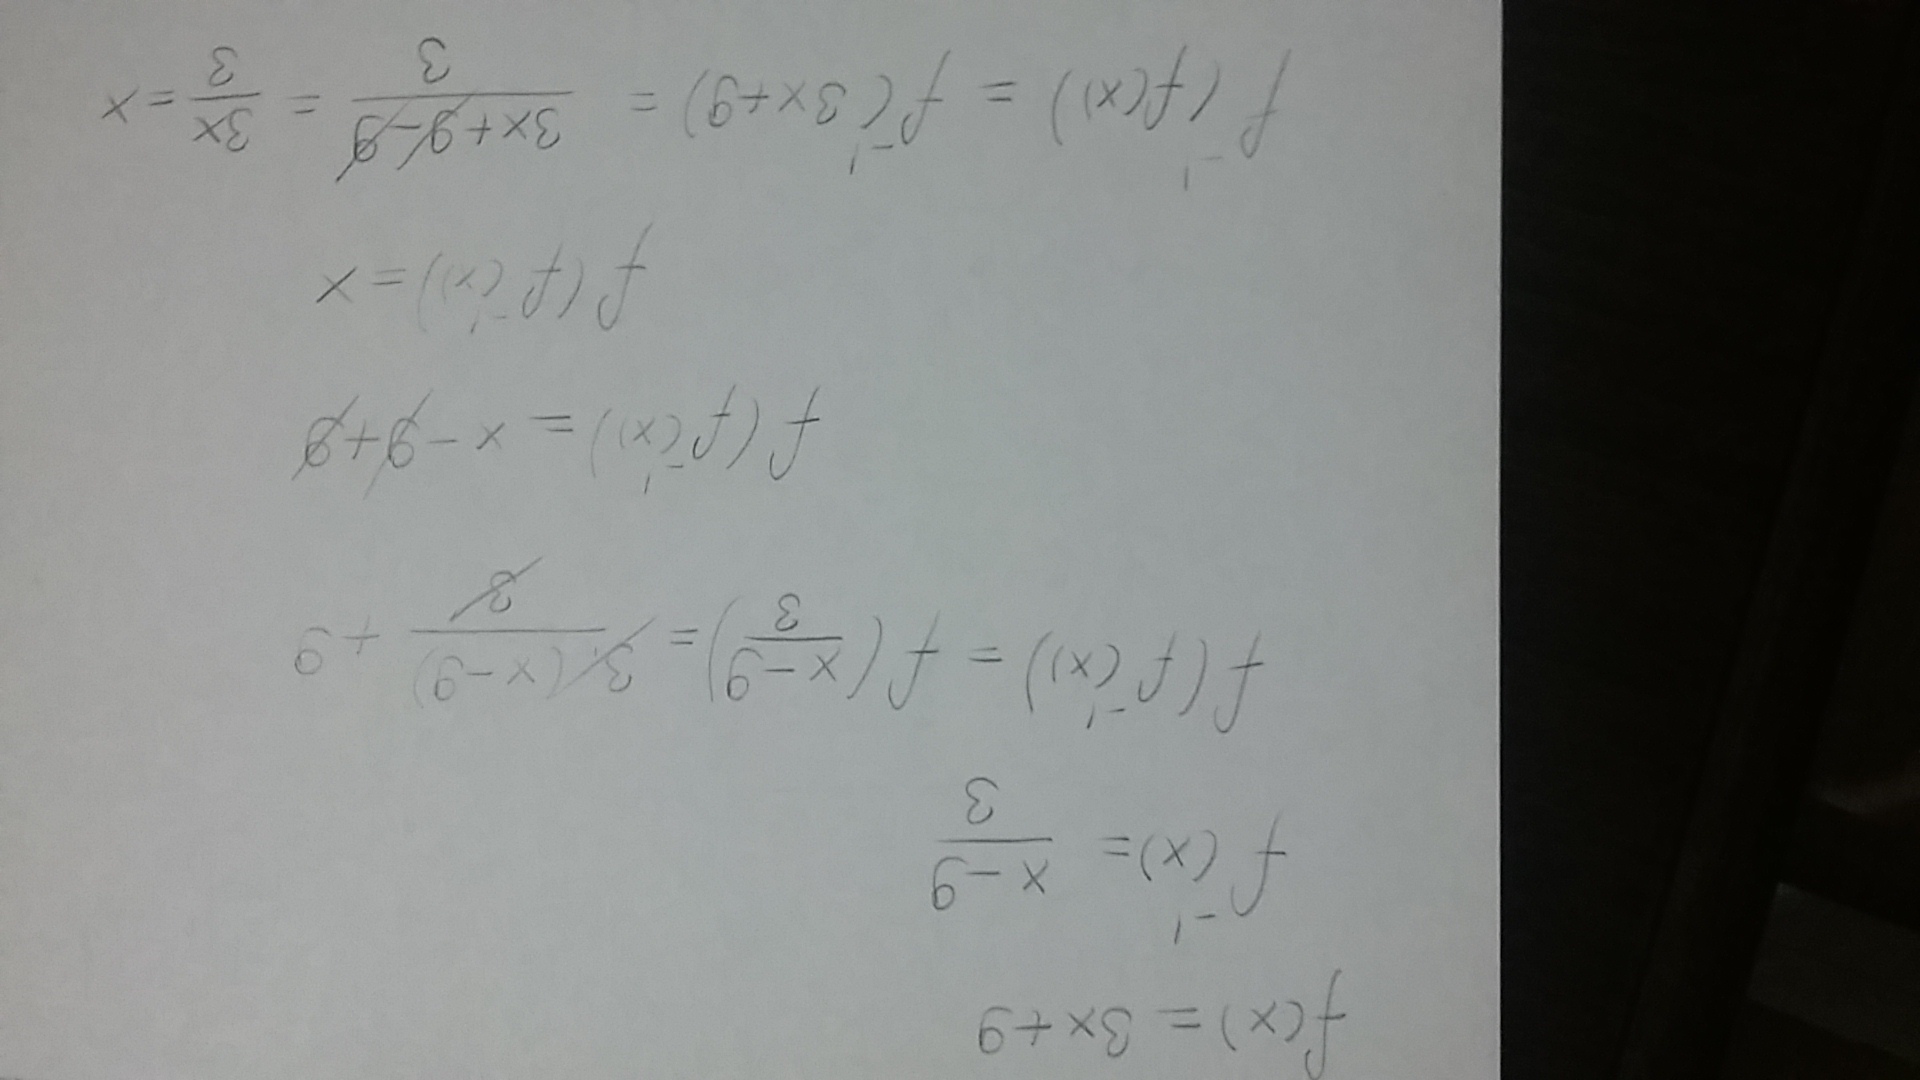 f(x) = 3x+9
f⁻¹(x) = \frac{x-9}{3}
f(f⁻¹(x)) = f(\frac{x-9}{3}) = \frac{3·(x-9)}{3} + 9
f(f⁻¹(x)) = x-9+9
f(f⁻¹(x)) = x
f⁻¹(f(x)) = f⁻¹(3x+9) = \frac{3x+9-9}{3} = \frac{3x}{3} = x